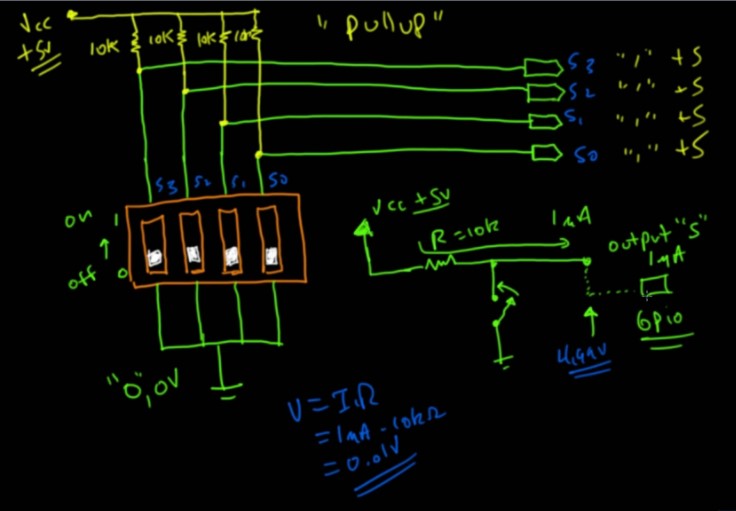 Vcc
+5V
10K 10K 10K 10K
"pullup"
S3 "1" +5
S2 "1" +5
S1 "1" +5
S0 "1" +5
S3 S2 S1 S0
on 1
off 0
"0", 0V
Vcc +5V
R = 10k
1mA
output "S"
1mA
GPIO
4,99V
V = I.R
= 1mA . 10kΩ
= 0.01V